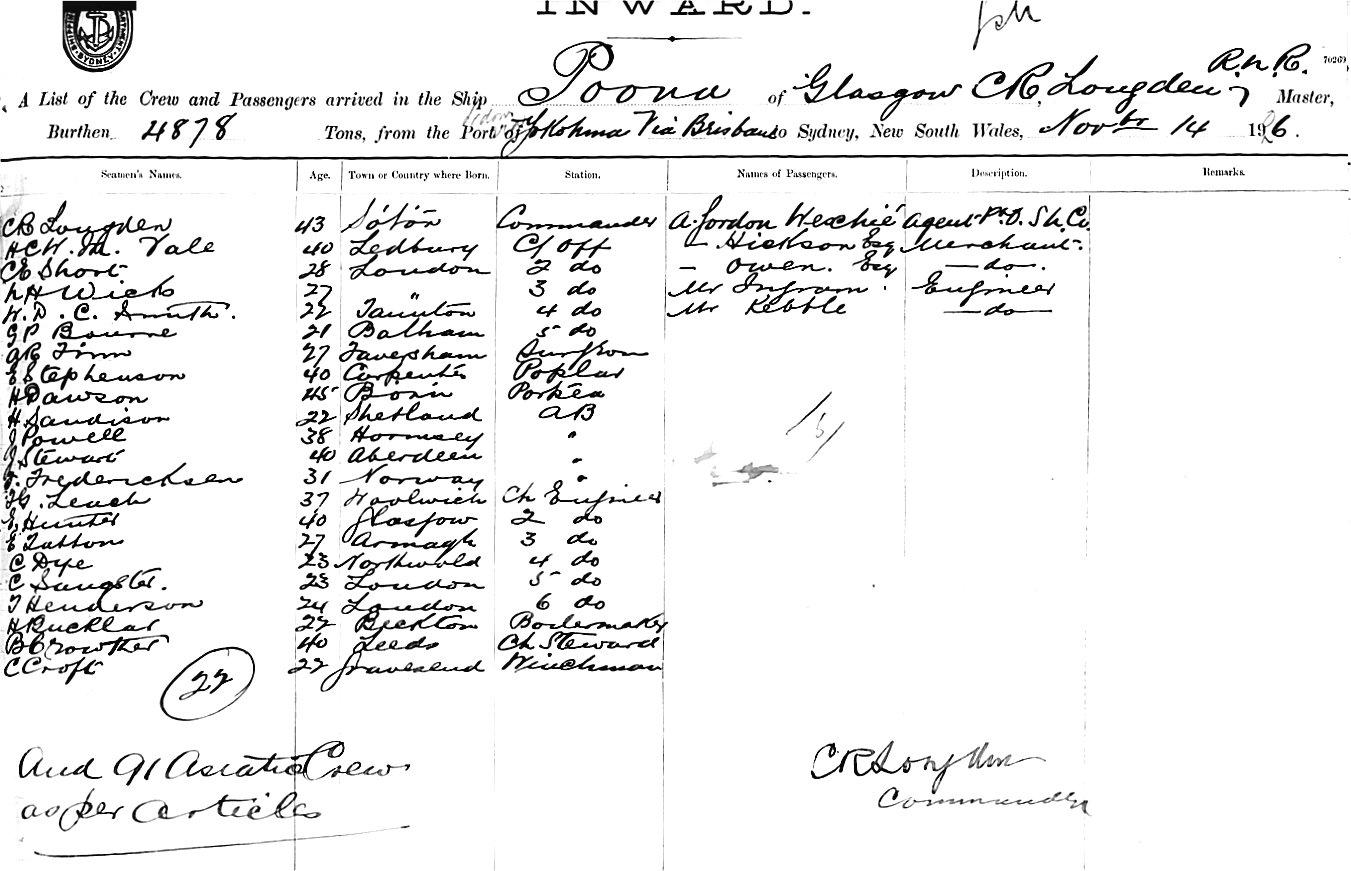 INWARD.
SHIPPING DEPARTMENT. SYDNEY
R.N.R. 70269
A List of the Crew and Passengers arrived in the Ship Poona of Glasgow C R, Longden, Master,
Burthen 4878 Tons, from the Port of Yokohma Via Brisbane to Sydney, New South Wales, Novbr 14 1906.
Seamen's Names. Age. Town or Country where Born. Station. Names of Passengers. Description. Remarks.
CR Longden 43 Sotón Commander A. Gordon Weschié Agent P&O. S.N. Co.
HCW. M. Vale 40 Ledbury C/ Off - Hickson Esq Merchant.
CE Short 28 London 2 do - Owen. Esq - do.
LH Wicks 27 " 3 do Mr Ingram. Engineer
W. D. C. Smith. 22 Taunton 4 do Mr Kebble - do -
GP Bourne 21 Balham 5 do
AR Finn 27 Faversham Surgeon
E Stephenson 40 Carpenter Poplar
H Dawson 45 Bosin Portsea
H Sandison 22 Shetland AB
J Powell 38 Hornsey "
J Stewart 40 Aberdeen "
F. Frederichsen 31 Norway "
FG. Leach 37 Woolwich Ch Engineer
E Hunter 40 Glasgow 2 do
E Tatton 27 Armagh 3 do
C Dye 23 Northwold 4 do
C Sangster. 23 London 5 do
T Henderson 24 London 6 do
H Bucklar 22 Beckton Boilermaker
B Crowther 40 Leeds Ch Steward
C Croft 22 Gravesend Winchman
22
And 91 Asiatic Crew
as per Articles
CR Longden
Commander